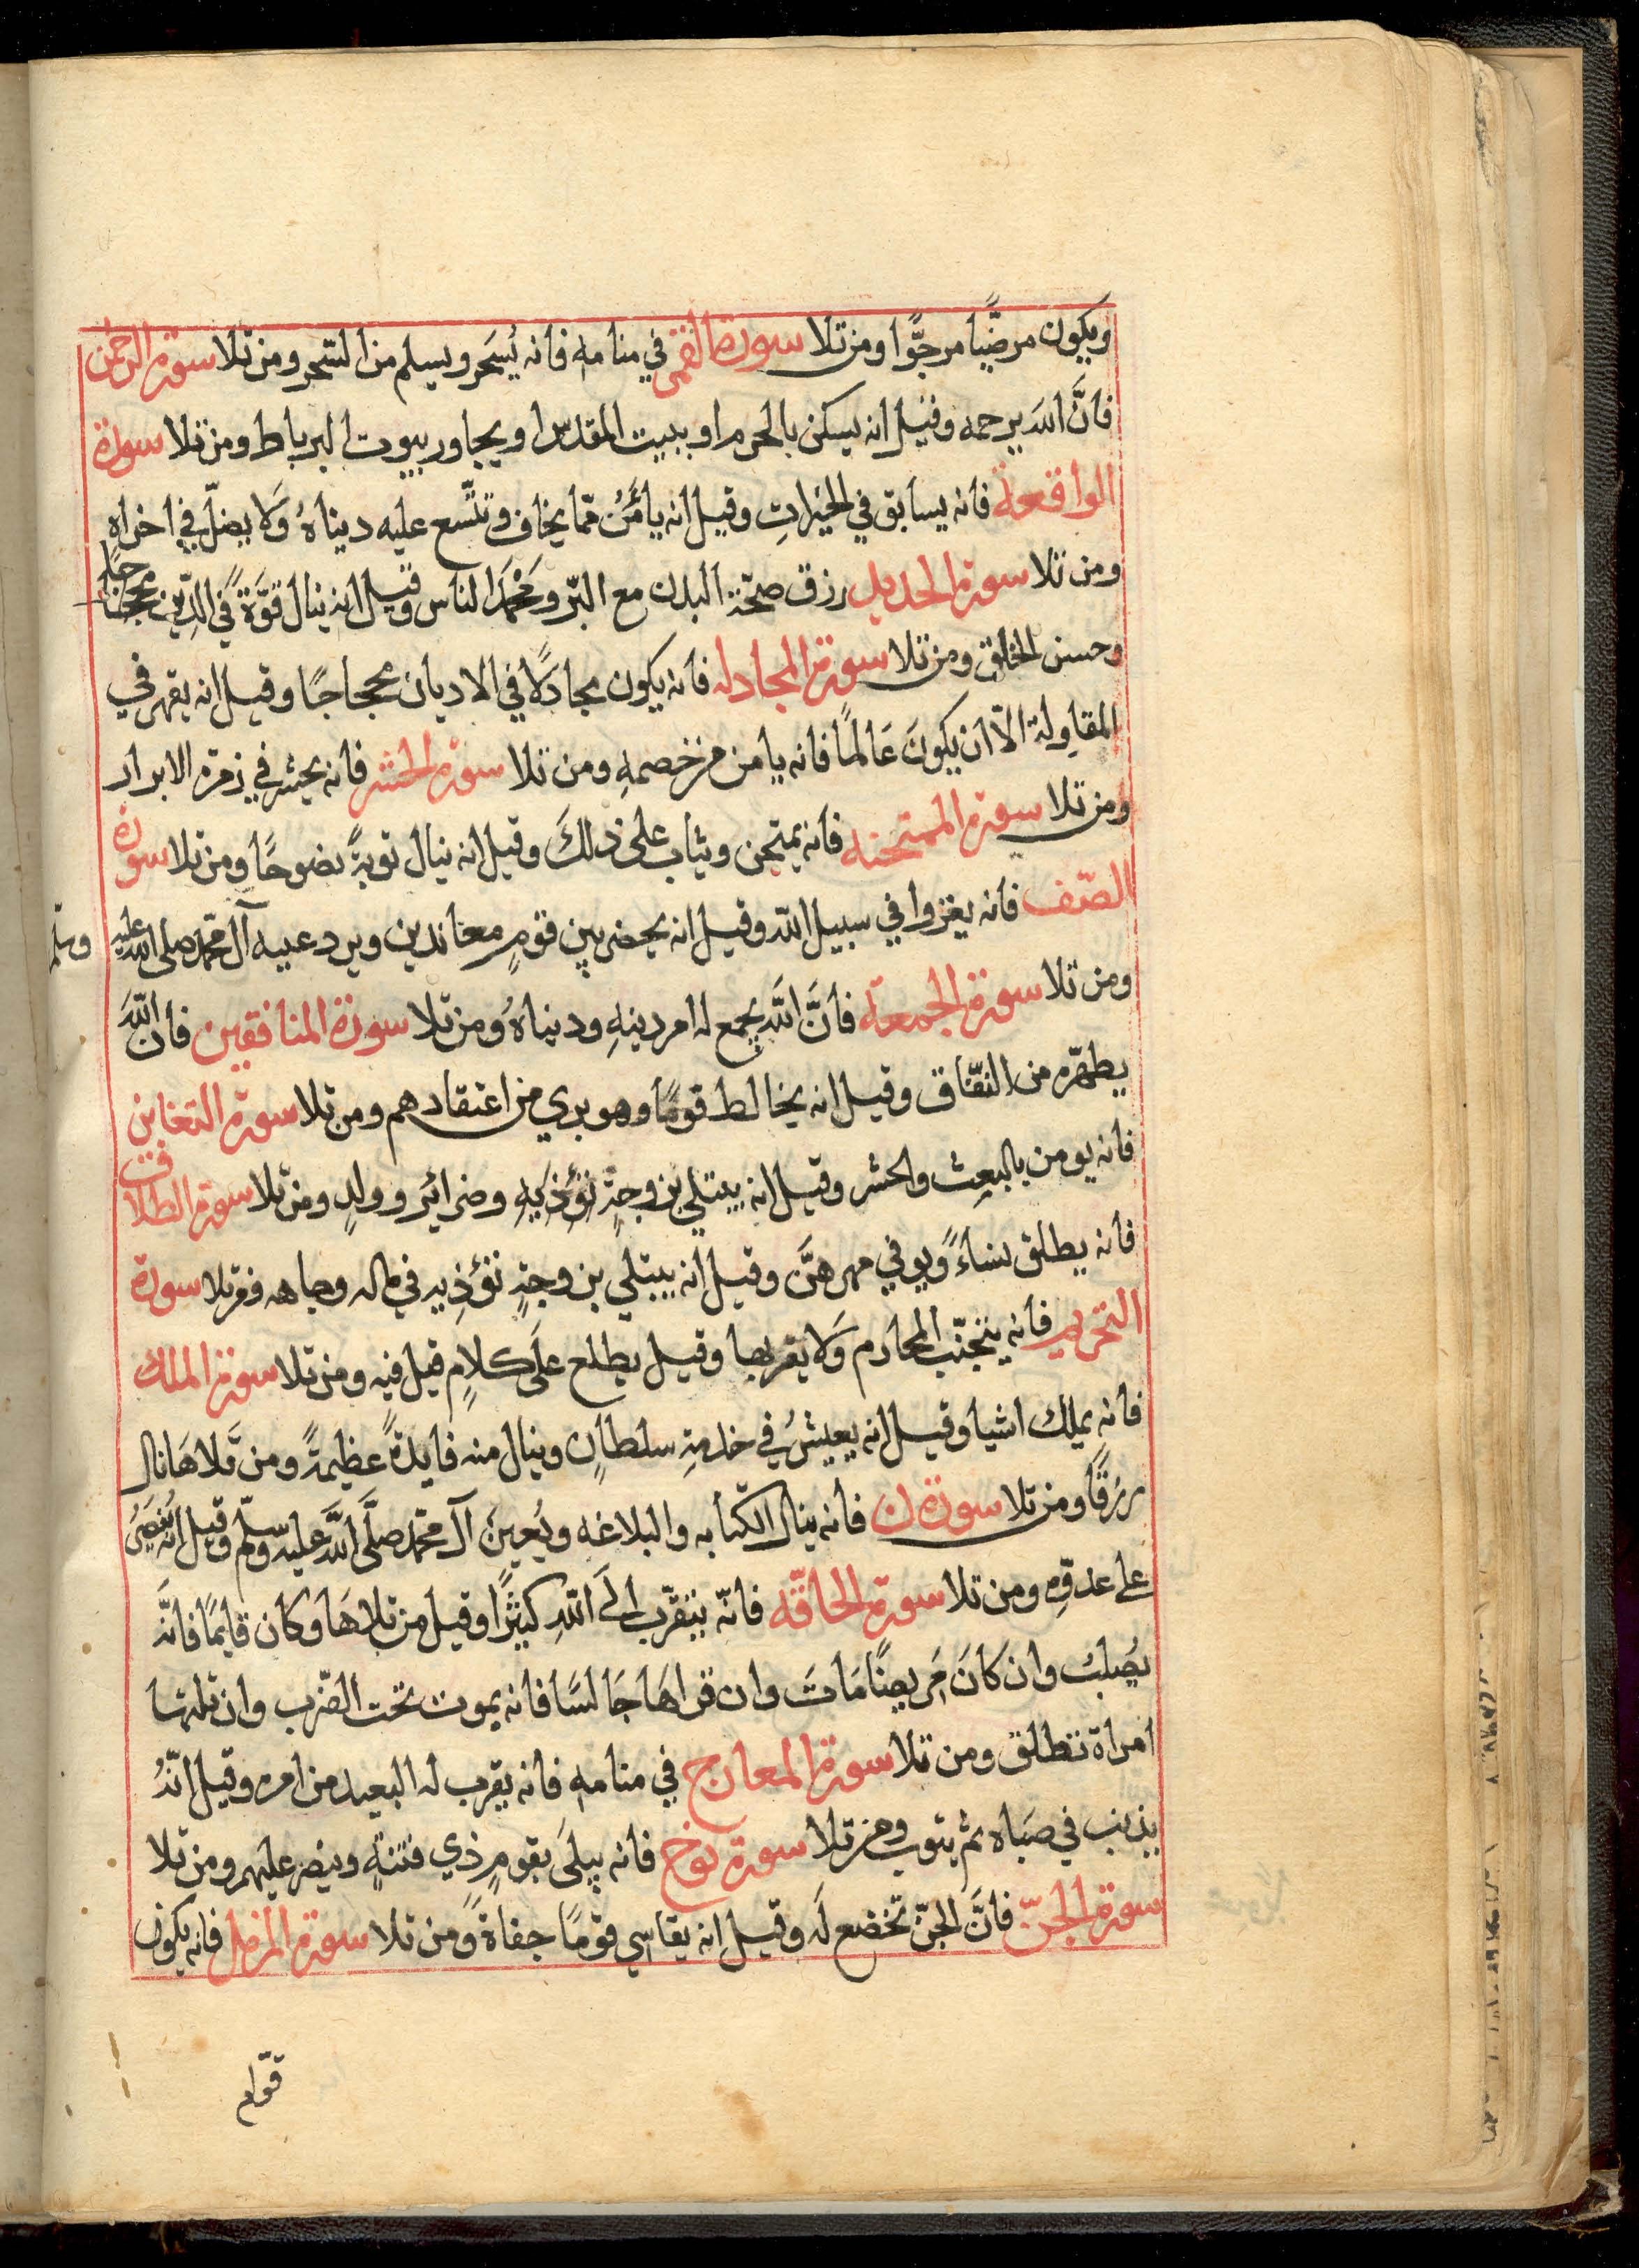 ويكون مرضّيا مرجوّا ومن تلا سورة القمر في منامه فانه يُسَحر ويسلم من السّحر ومن تلا سورة الرحمن
فانَّ اللهَ يرحمه وقيل انه يسكن بالحرم او ببيت المقدس او يجاور بيوت البر باط ومن تلا سورة
الواقعة فانه يسابق في الخيراتِ وقيل انه يأمَنُ ممّا يخاف وتتّسع عليه دنياهُ وَلا يضلّ في اخراه
ومن تلا سورة الحديد رزق صحّة البدن مع البرّ ومَحْمَدَ الناس وقيل انه ينال قوَّةً في الدّين
وحسن الخلق ومن تلا سورة المجادله فانه يكون مجادلًا في الاديان محجاجًا وقيل انه يقهر في
المقاولة الاّ ان يكونَ عَالمًا فانه يامن من خصمهِ ومن تلا سورة الحشر فانه يحشر في زمرة الابرار
ومن تلا سورة الممتحنه فانه يمتحن ويثاب على ذلكَ وقيل انه ينال توبةً نصوحًا ومن تلا سورة
الصّف فانه يغزوا في سبيل الله وقيل انه يحضر بين قومٍ معاندين ويرد عيبه آل محمّد صلى الله عليه وسلّم
ومن تلا سورة الجمعة فانَّ اللهَ يجمع له امر دينهِ ودنياهُ ومن تلا سورة المنافقين فان اللهَ
يطهّره من النّفاق وقيل انه يخالط قومًا وهو بري من اعتقادهم ومن تلا سورة التغابن
فانه يومن بالبعِث والحشر وقيل انه يبتلي بزوجةٍ تؤذيهِ وضرائر وولدٍ ومن تلا سورة الطلاق
فانه يطلق نساءً ويوفي مهرهنَّ وقيل انه يبتلي بزوجةٍ تؤذِيه في ماله وجاهه ومن تلا سورة
التحريم فانه يتجنّب المحارم وَلا يقربها وقيل يطلع عَلَى كلامٍ قيل فيه ومن تلا سورة الملك
فانه يملك اشيا وقيل انه يعيشُ في خدمةِ سلطانٍ وينال منه فايدةً عظيمةً ومن تلاهَا نال
رزقًا ومن تلا سورة ن فانه ينال الكتابه والبلاغه ويُعينَ آل محمّد صلَّى اللهَ عليه وسلّم وقيل انه يُنصرُ
على عدوّه ومن تلا سورة الحاقّه فانّه يتقرّب الَى اللهِ كثيرًا وقيل من تلاهَا وكان قايمًا فانَّه
يُصلبُ وان كانَ مَريضًا مَاتَ وان قراهَا جَالسًا فانه يموت تحت الضّرب وان تلتها
امراة تطلق ومن تلا سورة المعارج في منامه فانه يقرب له البعيد من امره وقيل انّهُ
يذنب في صبَاه ثم يتوب ومن تلا سورة نوح فانه يبلَى بقومٍ ذي فتنةٍ وينصر عليهم ومن تلا
سورة الجنّ فانَّ الجنّ تخضع لَه وقيل انه يقاسي قومًا جفاةً ومن تلا سورة المزمل فانه يكون
قوّام